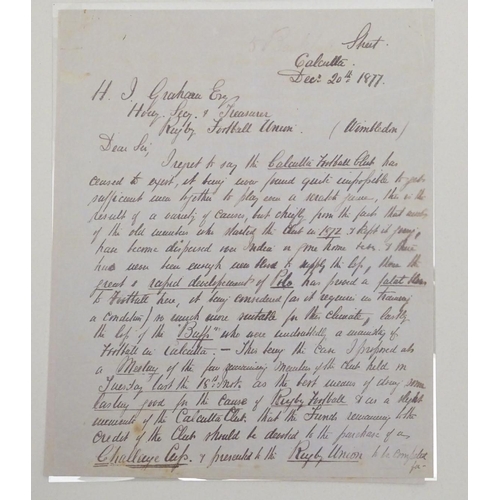 Street.
Calcutta.
Decr. 20th 1877.
H. I. Graham Esq
Hony. Secy. & Treasurer
Rugby Football Union. (Wimbledon)
Dear Sir,
I regret to say the Calcutta Football Club has
ceased to exist, it being now found quite impossible to get
sufficient men together to play even a scratch game, this is the
result of a variety of causes, but chiefly from the fact that many
of the old members who started the Club in 1872 & kept it going,
have become dispersed over India or gone home & there
has never been enough new blood to supply the loss, then the
great & rapid development of Polo has proved a fatal blow
to Football here, it being considered (as it requires no training
or condition) so much more suitable for the climate, lastly
the loss of the "Buffs" who were undoubtedly a mainstay of
Football in Calcutta; – This being the case I proposed at
a Meeting of the few remaining members of the Club held on
Tuesday last the 18th Inst. as the best means of doing some
lasting good for the cause of Rugby Football & as a slight
memento of the Calcutta Club, that the Funds remaining to the
credit of the Club should be devoted to the purchase of a
Challenge Cup & presented to the Rugby Union to be competed
for